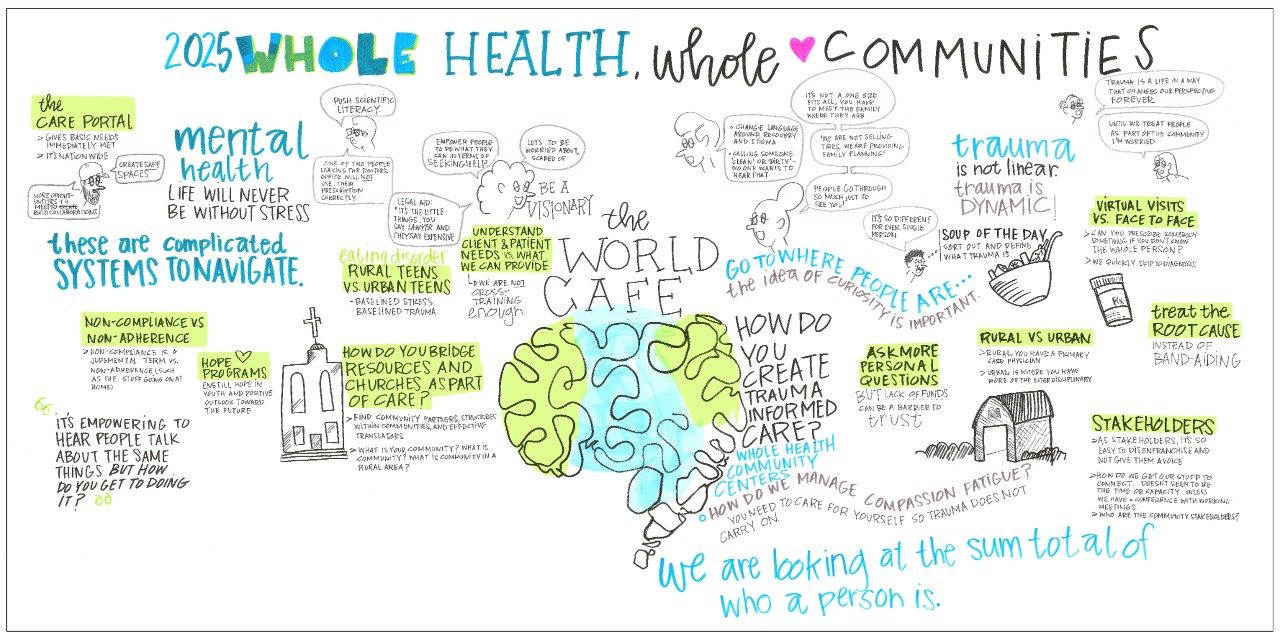 2025 WHOLE HEALTH, whole COMMUNITIES
the
CARE PORTAL
> GIVES BASIC NEEDS
IMMEDIATELY MET
> IT'S NATIONWIDE
CREATE SAFE
SPACES
BUILD COLLABORATIONS
mental
health
LIFE WILL NEVER
BE WITHOUT STRESS
these are complicated
SYSTEMS TO NAVIGATE.
PUSH SCIENTIFIC
LITERACY.
ONE OF TWO PEOPLE
LEAVING THE DOCTORS
OFFICE WILL NOT
USE THEIR
PRESCRIPTION
CORRECTLY.
EMPOWER PEOPLE
TO DO WHAT THEY
CAN IN TERMS OF
SEEKING HELP.
LOTS TO BE
WORRIED ABOUT,
SCARED OF
LEGAL AID:
"IT'S THE LITTLE
THINGS, YOU
SAY LAWYER AND
THEY SAY EXPENSIVE
BE A
VISIONARY
eating disorder
RURAL TEENS
VS URBAN TEENS
- BASELINED STRESS
- BASELINED TRAUMA
UNDERSTAND
CLIENT & PATIENT
NEEDS VS. WHAT
WE CAN PROVIDE
WE ARE NOT
CROSS-
TRAINING
enough.
the
WORLD
CAFE
> CHANGE LANGUAGE
AROUND RECOVERY
AND STIGMA
> CALLING SOMEONE
'CLEAN' OR 'DIRTY'-
NO ONE WANTS TO
HEAR THAT
IT'S NOT A ONE SIZE
FITS ALL, YOU HAVE
TO MEET THE FAMILY
WHERE THEY ARE
"WE ARE NOT SELLING
TIRES, WE ARE PROVIDING
FAMILY PLANNING"
PEOPLE GO THROUGH
SO MUCH JUST TO
SEE YOU!
IT'S SO DIFFERENT
FOR EVERY SINGLE
PERSON
GO TO WHERE PEOPLE ARE...
the idea of CURIOSITY IS IMPORTANT.
trauma
is not linear.
trauma is
DYNAMIC!
SOUP OF THE DAY
SORT OUT AND DEFINE
WHAT TRAUMA IS.
TRAUMA IS A LIFE IN A WAY
THAT CHANGES OUR PERSPECTIVE
FOREVER
UNTIL WE TREAT PEOPLE
AS PART OF THE COMMUNITY
I'M WORRIED
VIRTUAL VISITS
VS. FACE TO FACE
> CAN YOU PRESCRIBE SOMEBODY
SOMETHING IF YOU DON'T KNOW
THE WHOLE PERSON?
> WE QUICKLY SKIP TO DIAGNOSIS
Rx
treat the
ROOT CAUSE
INSTEAD OF
BAND-AIDING
NON-COMPLIANCE VS
NON-ADHERENCE
> NON-COMPLIANCE IS A
JUDGMENTAL TERM VS.
NON-ADHERENCE (SUCH
AS THE STUFF GOING ON AT
HOME)
HOPE
PROGRAMS
ENSTILL HOPE IN
YOUTH AND POSITIVE
OUTLOOK TOWARD
THE FUTURE
HOW DO YOU BRIDGE
RESOURCES AND
CHURCHES AS PART
OF CARE?
> FIND COMMUNITY PARTNERS, STRUCTURES
WITHIN COMMUNITIES, AND EFFECTIVE
TRANSLATORS
> WHAT IS YOUR COMMUNITY? WHAT IS
COMMUNITY? WHAT IS COMMUNITY IN A
RURAL AREA?
IT'S EMPOWERING TO
HEAR PEOPLE TALK
ABOUT THE SAME
THINGS BUT HOW
DO YOU GET TO DOING
IT?
HOW DO
YOU
CREATE
TRAUMA
INFORMED
CARE?
WHOLE HEALTH
COMMUNITY
CENTERS
HOW DO WE MANAGE COMPASSION FATIGUE?
YOU NEED TO CARE FOR YOURSELF SO TRAUMA DOES NOT
CARRY ON.
ASK MORE
PERSONAL
QUESTIONS
BUT LACK OF FUNDS
CAN BE A BARRIER TO
trust
RURAL VS URBAN
> RURAL YOU HAVE A PRIMARY
CARE PHYSICIAN
> URBAN IS WHERE YOU HAVE
MORE OF THE INTERDISCIPLINARY
STAKEHOLDERS
> AS STAKEHOLDERS, IT'S SO
EASY TO DISENFRANCHISE AND
NOT GIVE THEM A VOICE
> HOW DO WE GET OUR STUFF TO
CONNECT. DOESN'T SEEM TO BE
THE TIME OR CAPACITY. UNLESS
WE HAVE A CONFERENCE WITH WORKING
MEETINGS.
> WHO ARE THE COMMUNITY STAKEHOLDERS?
we are looking at the sum total of
who a person is.